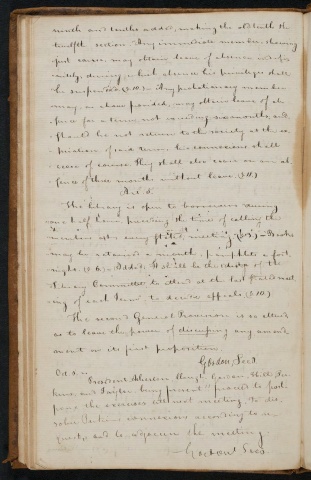 ninth and tenths added, making the old tenth the
twelfth section. Any immediate member, showing
just cause, may obtain leave of absence
during which absence his privileges shall
be suspended. Any probationary member
may, as above provided, obtain leave of ab-
sence for a term not exceeding six months, and
should he not return to the society at the ex-
piration of said term his connexions shall
cease of course. They shall also cease on an ab-
sence of three months without leave.
Art. 8.
The library is open to borrowers during
one half hour preceding the time of calling the
meeting at every stated meeting. Books
may be retained a month, pamphlets a fort-
night. It shall be the duty of the
Library Committee to attend at the last stated meet-
ing of each term to decide appeals
The second General Provision is so altered
as to leave the power of discussing any amend-
ment on its first proposition.
Gordon Secr.
Oct. 8.
President
and Taylor being present proceed to post-
pone the exercises till next meeting. To dis-
solve connexions according to
and to adjourn the meeting.
Gordon Secr.